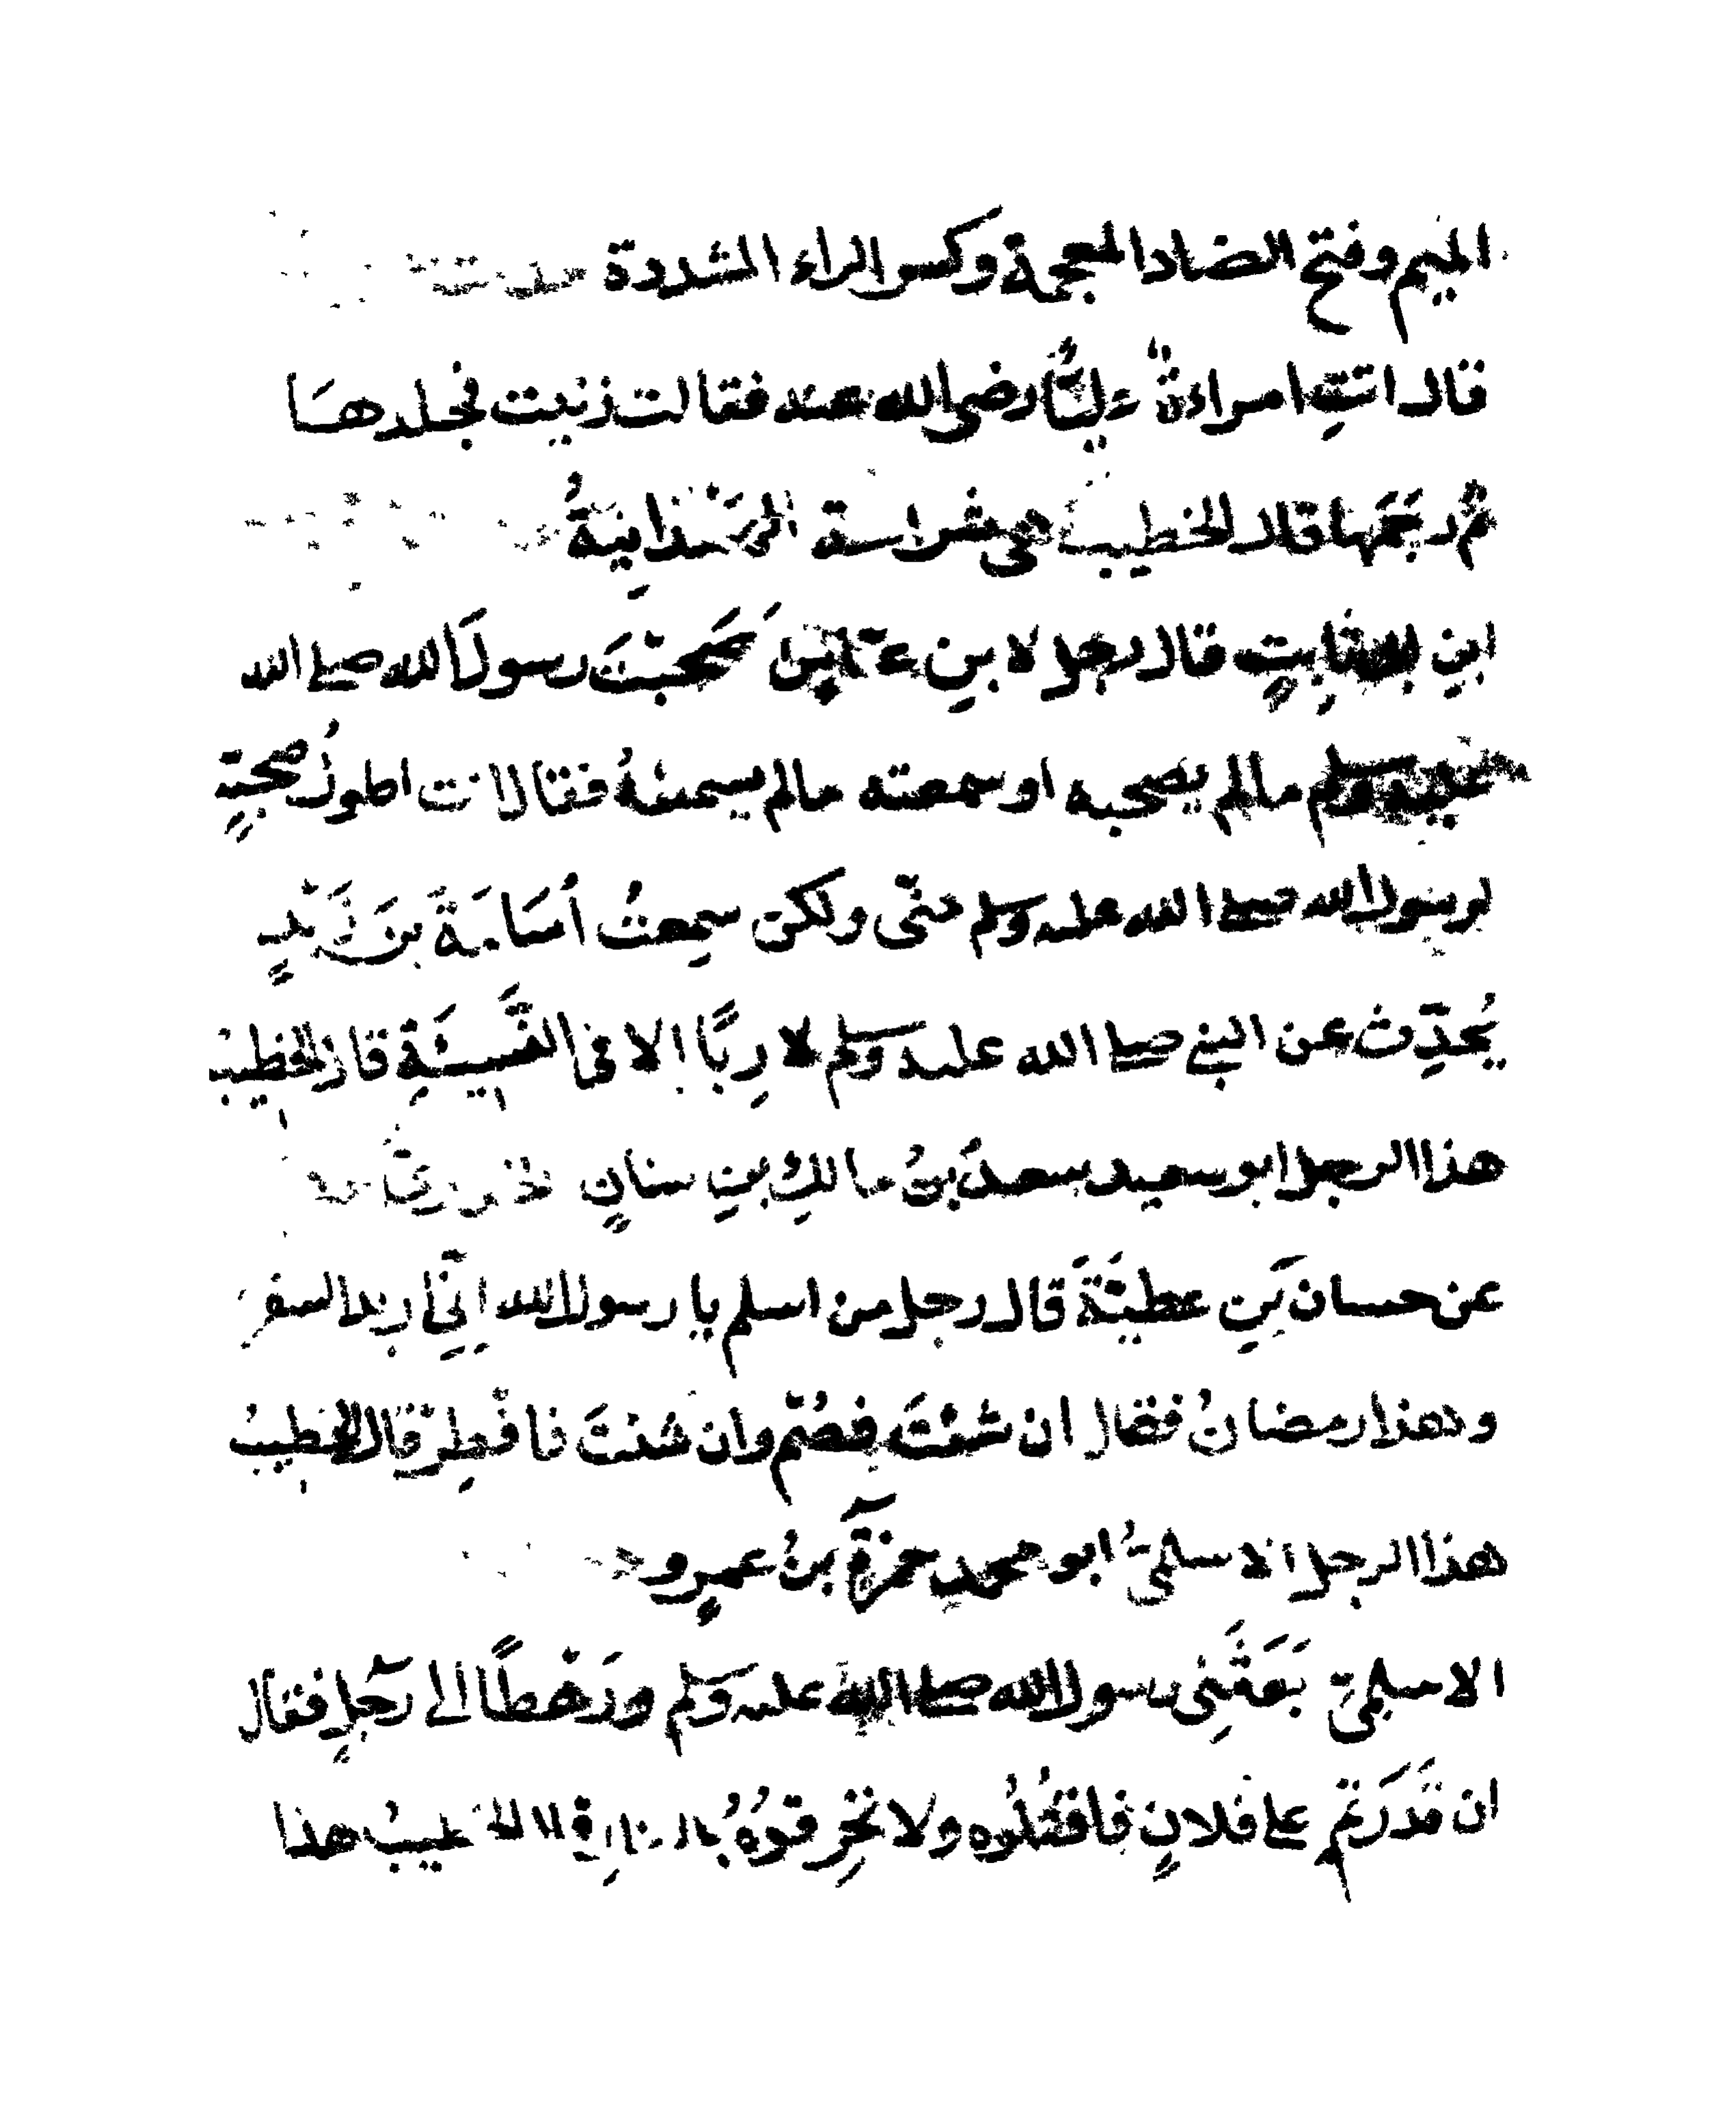 الميم وفتح الضاد المعجمة وكسر الراء المشددة
قال اتتِ امراءةٌ عليًّا رضي الله عنه فقالت زنيت فجلدها
ثم رجَمَها قال الخطيب هي شراسة الهَمْدانِيةُ
ابن ثابِتٍ قال رجل لابنِ عبّاسٍ صَحِبْتَ رسولَ الله صلى الله
عليه وسلم مالم يصحبه او سمعته مالم يسمعْهُ فقال انت اطولُ صحبةٍ
لرسول الله صلى الله عليه وسلم منّي ولكن سمِعتُ أُسَامَةَ بنَ زَيْدٍ
يُحدِّث عن النبي صلى الله عليه وسلم لا رِبًا إلا في النَّسِيئَةِ قال الخطيبُ
هذا الرجل ابو سعيد سعدُ بنُ مالكِ بنِ سنانٍ
عن حسان بنِ عطيَّةَ قال رجل من اسلم يا رسول الله إنّي أريد السفر
وهذا رمضانُ فقال ان شئْتَ فصُمْ وان شئتَ فافْطِرْ قال الخطيبُ
هذا الرجل الاسلميُّ ابو محمدٍ حمزةُ بنُ عمرٍو
الاسلميّ بَعَثَنِي رسول الله صلى الله عليه وسلم ورَهْطًا الى رَجُلٍ فقال
ان قَدَرْتم على فلانٍ فاقتُلُوه ولا تحْرِقوُهُ بالنارِ قال الخطيبُ هذا